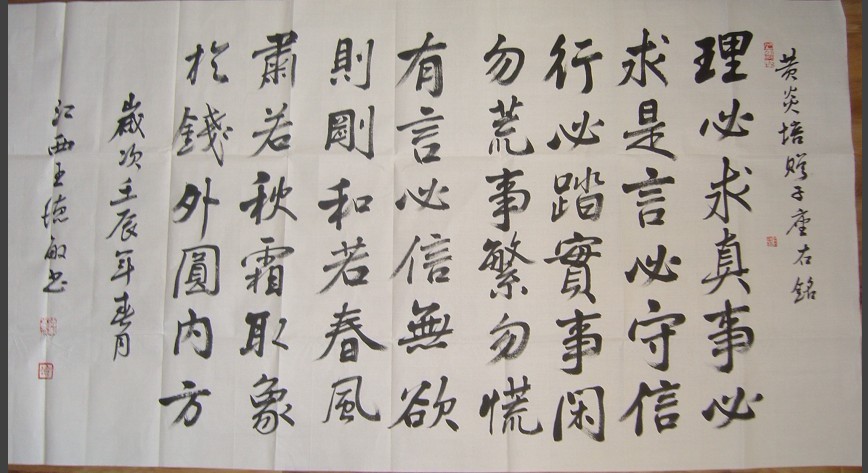 黄炎培贈子座右銘
理必求真事必
求是言必守信
行必踏實事闲
勿荒事繁勿慌
有言必信無欲
則剛和若春風
肅若秋霜取象
於錢外圓内方
歲次壬辰年春月
江西王德敏书